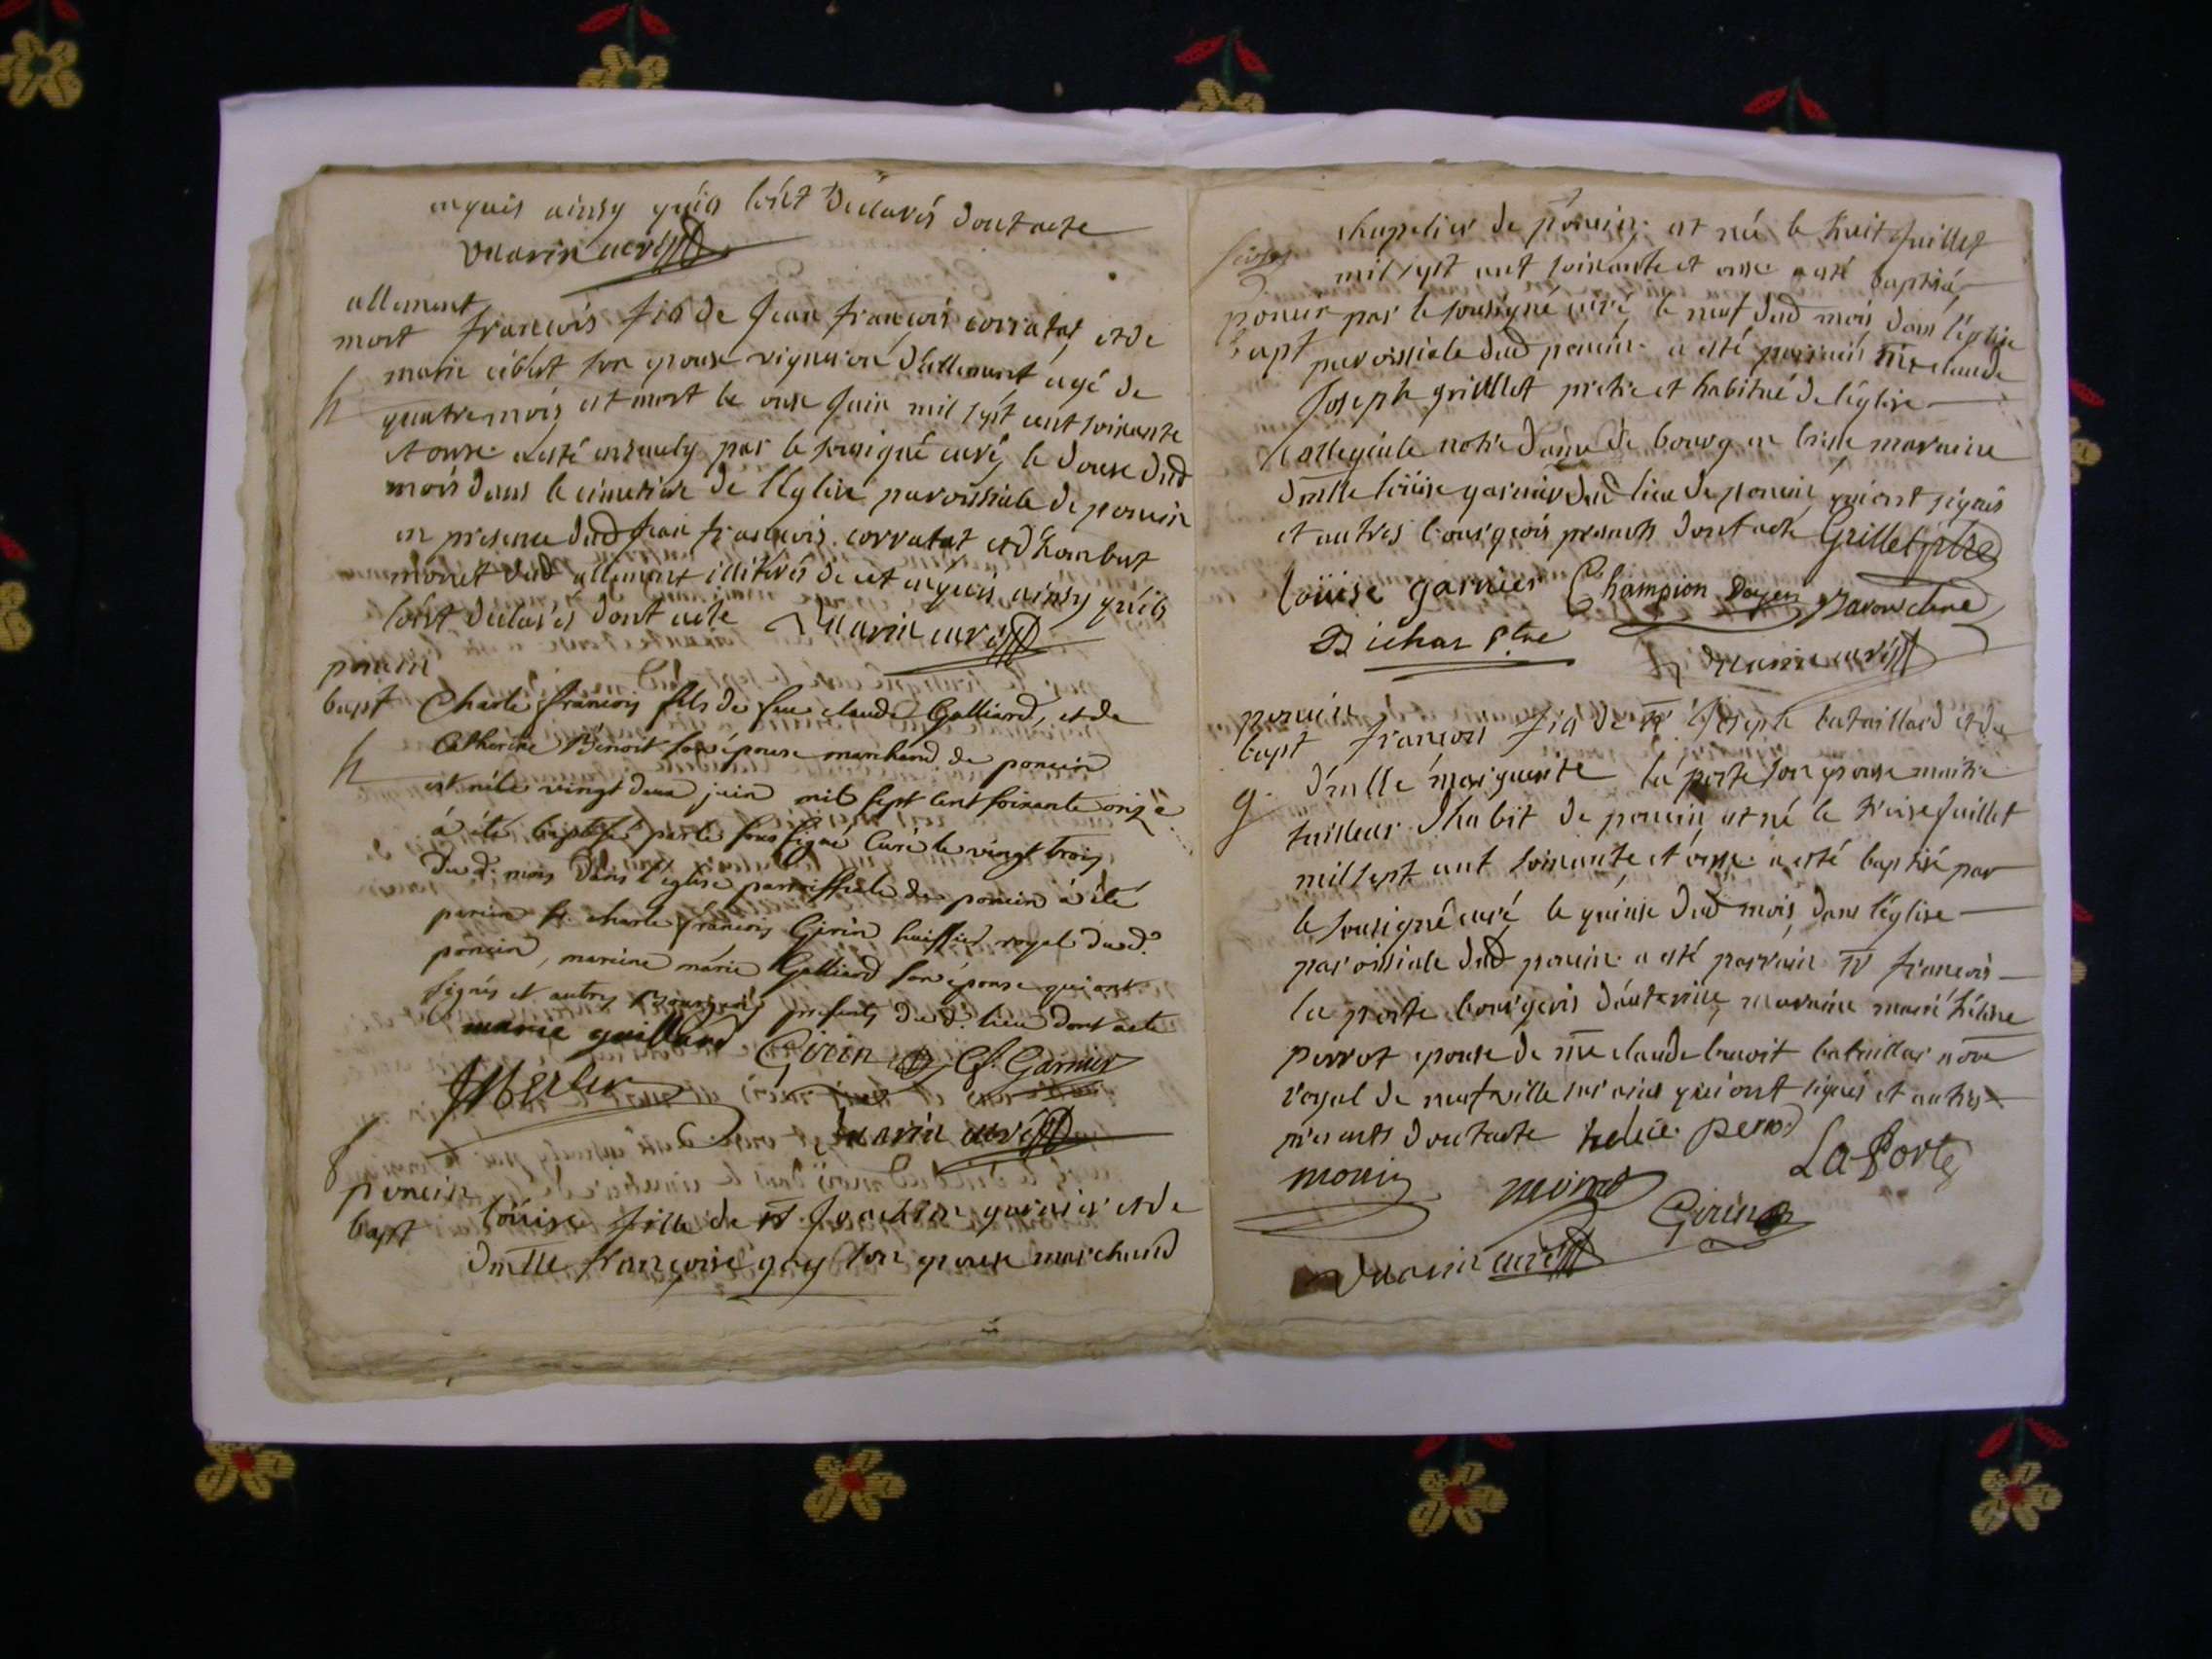 enquis ainsy qu'ils l'ont déclarés dont acte
curé
allement
mort françois fils de Jean françois corratat et de
marie son epouse vigneron d'allement agé de
quatre mois est mort le onse Juin mil sept cent soixante
et onse a esté ensevely par le sousigné curé le douse dud
mois dans le cimetiere de l'Eglise paroissiale de poncin
en presence dud Jean françois corratat et d'humbert
monet dud allement illiterés de ce enquis ainsy qu'ils
l'ont declarés dont acte curé
poncin
bapt Charle françois fils de feu claude Galliard, et de
Catherine Benoit son épouse marchand de poncin
est né le vingt deux juin mil sept cent soixante onze
à été baptisé par le sous signé Curé le vingt trois
du d. mois dans l'église parroissiale de poncin à été
parein Sr. charle françois Girin huissier royal du d.
poncin, mareine marie Galliard son épouse qui ont
signés et autres Bourgeois presents du d. lieu dont acte
marie gaillard Girin Cf. Garnier
curé
poncin
bapt loüise fille de sr Joachim garnier et de
dmlle françoise gay son epouse marchand
chapelier de poncin est née le huit Juillet
mil sept cent soixante et onse a esté baptisée
poncin par le sousigné curé le neuf dud mois dans l'église
bapt paroissiale dud poncin a esté parrain mre claude
Joseph grilllet pretre et habitué de l'église
collegiale notre dame de bourg en bresse marraine
dmlle loüise garnier dud lieu de poncin qui ont signés
et autres bourgeois presents dont acte Grillet ptre
loüise garnier Champion Doyen
ptre
curé
poncin
bapt françois fils de sr Joseph bataillard et de
dmlle marguerite la porte son epouse maitre
g.
tailleur d'habit de poncin est né le treise Juillet
mil sept cent soixante et onse a esté baptisé par
le sousigné curé le quinse dud mois dans l'église
paroissiale dud poncin a esté parrain sr françois
la porte bourgeois marraine marie hélene
perrot epouse de mre claude benoit bataillar nore
royal de neufville sur ains qui ont signés et autres
presents dont acte helene perrod
La Porte
monin monet
Girin
curé